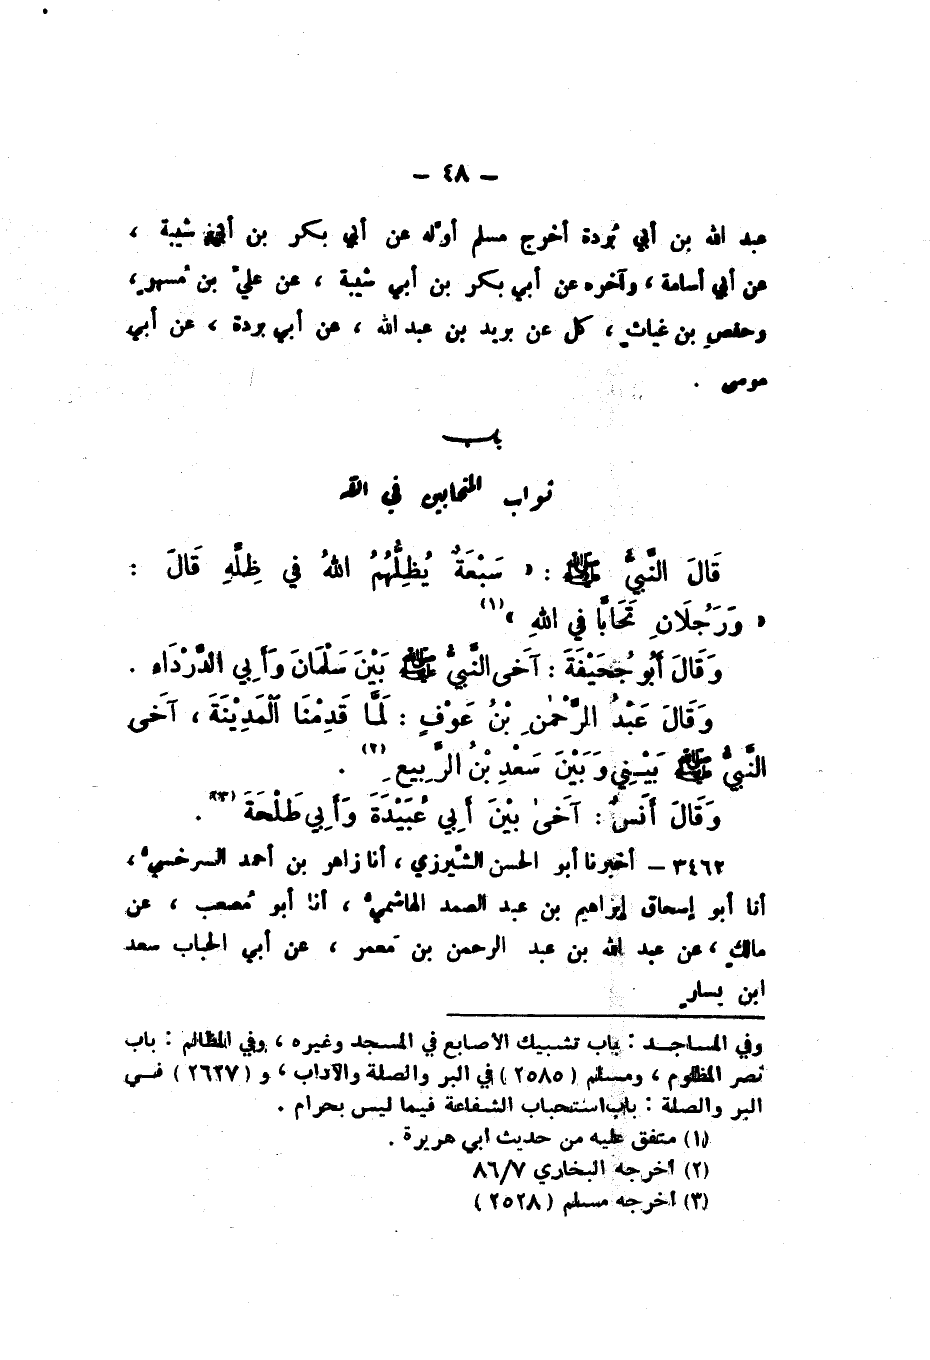 — ٤٨ —
عبد الله بن أبي بُردة أخرج مسلم أوّله عن أبي بكر بن أبي شيبة ،
عن أبي أسامة ، وآخره عن أبي بكر بن أبي شيبة ، عن عليّ بن مُسهرٍ ،
وحفصِ بن غياثٍ ، كل عن بريد بن عبد الله ، عن أبي بردة ، عن أبي
موسى .
باب
ثواب المتحابين في الله
قَالَ النَّبيُّ ﷺ : « سَبْعَةٌ يُظِلُّهُمُ اللهُ في ظِلَّهِ قَالَ :
« وَرَجُلَانِ تَحَابَّا في اللهِ »(١)
وَقَالَ أَبُو جُحَيْفَةَ : آخَى النَّبيُّ ﷺ بَيْنَ سَلْمَانَ وَأَبِي الدَّرْدَاءِ .
وَقَالَ عَبْدُ الرَّحْمٰنِ بْنُ عَوْفٍ : لَمَّا قَدِمْنَا الْمَدِيْنَةَ ، آخَى
النَّبيُّ ﷺ بَيْنِي وَبَيْنَ سَعْدِ بْنُ الرَّبِيعِ(٢) .
وَقَالَ أَنَسٌ : آخَىٰ بَيْنَ أَبِي عُبَيْدَةَ وَأَبِي طَلْحَةَ(٣) .
٣٤٦٢ — أخبرنا أبو الحسن الشيرزي ، أنا زاهر بن أحمد السرخسيُ ،
أنا أبو إسحاق إبراهيم بن عبد الصمد الهاشميُ ، أنا أبو مُصعب ، عن
مالكٍ ، عن عبد الله بن عبد الرحمن بن مَعمر ، عن أبي الحباب سعد
ابن يسارٍ
وفي المساجد : باب تشبيك الأصابع في المسجد وغيره ، وفي المظالم : باب
نصر المظلوم ، ومسلم ( ٢٥٨٥ ) في البر والصلة والآداب ، و ( ٢٦٢٧ ) في
البر والصلة : باب استحباب الشفاعة فيما ليس بحرام .
(١) متفق عليه من حديث أبي هريرة .
(٢) أخرجه البخاري ٨٦/٧
(٣) أخرجه مسلم ( ٢٥٢٨ )